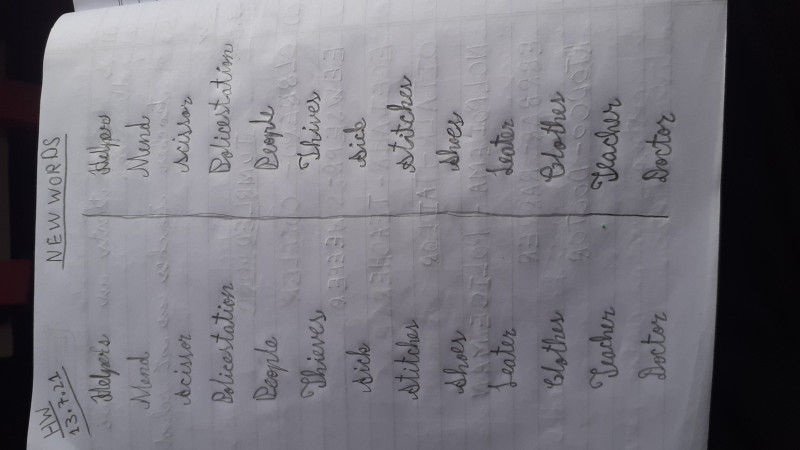 HW
13.7.22
NEW WORDS
Helpers Helpers
Mend Mend
Scissor Scissor
Policestation Policestation
People People
Thieves Thives
Sick Sick
Stitches Stitches
Shoes Shoes
Leater Leater
Clothes Clothes
Teacher Teacher
Doctor Doctor